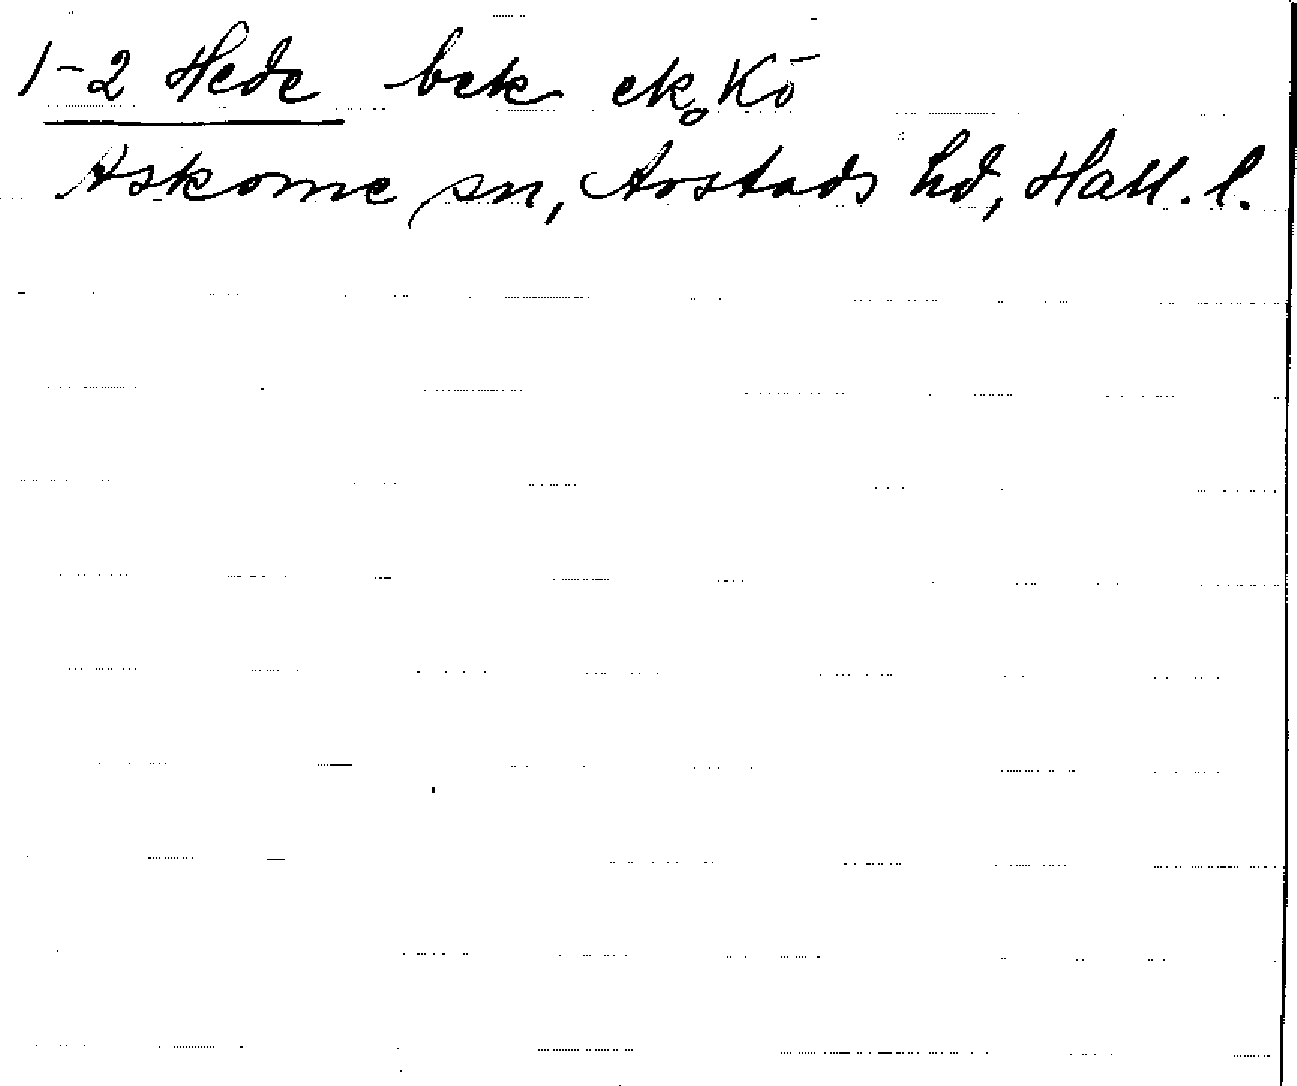 1-2 Hede bek ek. Kö
Askome sn, Årstads hd, Hall. l.